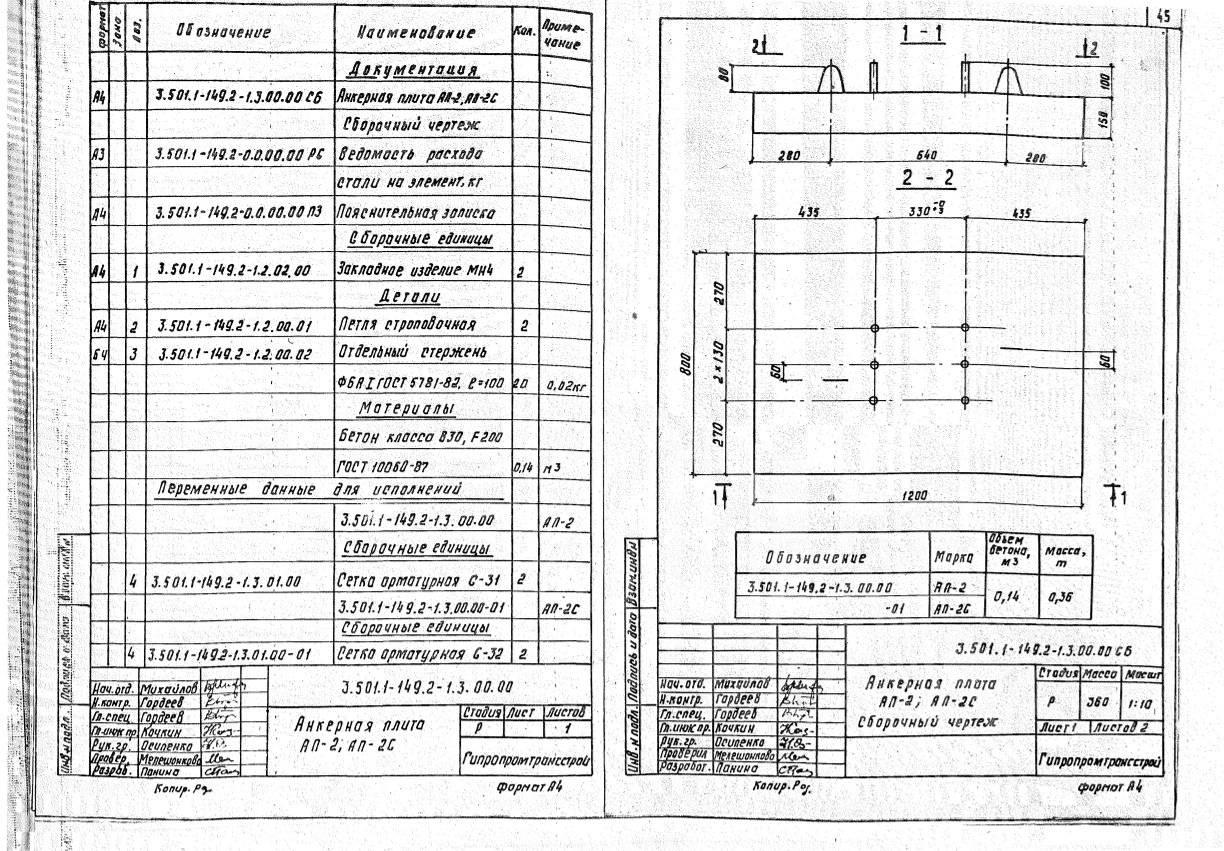 формат Зона Поз. Обозначение Наименование Кол. Приме-
чание
Документация
А4 3.501.1-149.2-1.3.00.00 СБ Анкерная плита АП-2, АП-2С
Сборочный чертеж
А3 3.501.1-149.2-0.0.00.00 РС Ведомость расхода
стали на элемент, кг
А4 3.501.1-149.2-0.0.00.00 ПЗ Пояснительная записка
Сборочные единицы
А4 1 3.501.1-149.2-1.2.02.00 Закладное изделие МН4 2
Детали
А4 2 3.501.1-149.2-1.2.00.01 Петля строповочная 2
БЧ 3 3.501.1-149.2-1.2.00.02 Отдельный стержень
Ф6АI ГОСТ 5781-82, ℓ=100 20 0,02кг
Материалы
Бетон класса В30, F200
ГОСТ 10060-87 0,14 м3
Переменные данные для исполнений
3.501.1-149.2-1.3.00.00 АП-2
Сборочные единицы
4 3.501.1-149.2-1.3.01.00 Сетка арматурная С-31 2
3.501.1-149.2-1.3.00.00-01 АП-2С
Сборочные единицы
4 3.501.1-149.2-1.3.01.00-01 Сетка арматурная С-32 2
Взам. инв№
Подпись и дата
Инв. № подл.
3.501.1-149.2-1.3.00.00
Нач. отд. Михайлов
Н.контр. Гордеев
Гл.спец. Гордеев
Гл.инж пр. Кочкин
Рук. гр. Осипенко
Провер. Мелешонкова
Разраб. Панина
Анкерная плита
АП-2; АП-2С
Стадия Лист Листов
Р 1
Гипропромтрансстрой
Копир. формат А4
45
1 - 1
2 2
80 100
150
280 640 280
2 - 2
435 330 435
270
800 2×130 60 60
270
1 1
1200
Обозначение Марка Объем бетона, м3 Масса, т
3.501.1-149.2-1.3.00.00 АП-2 0,14 0,36
-01 АП-2С
Взам. инв№
Подпись и дата
Инв. № подл.
3.501.1-149.2-1.3.00.00 СБ
Нач. отд. Михайлов
Н.контр. Гордеев
Гл.спец. Гордеев
Гл.инж пр. Кочкин
Рук. гр. Осипенко
Проверил Мелешонкова
Разработ. Панина
Анкерная плата
АП-2; АП-2С
Сборочный чертеж
Стадия Масса Масшт
Р 360 1:10
Лист 1 Листов 2
Гипропромтрансстрой
Копир. формат А4